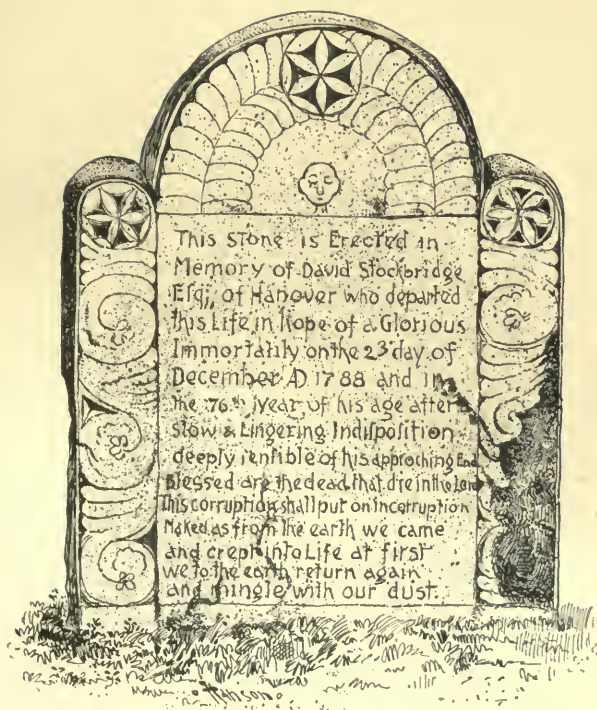 This Stone is Erected in
Memory of David Stockbridge
Esqr, of Hanover who departed
this Life, in hope of a Glorious
Immortality on the 23d day of
December AD. 1788 and in
the 76th year of his age after a
slow & Lingering Indisposition
deeply sensible of his approching End
Blessed are the dead that die in the Lord
This corruption shall put on incorruption
Naked as from the earth we came
and crept into Life at first
we to the earth return again
and mingle with our dust.
Hanson.